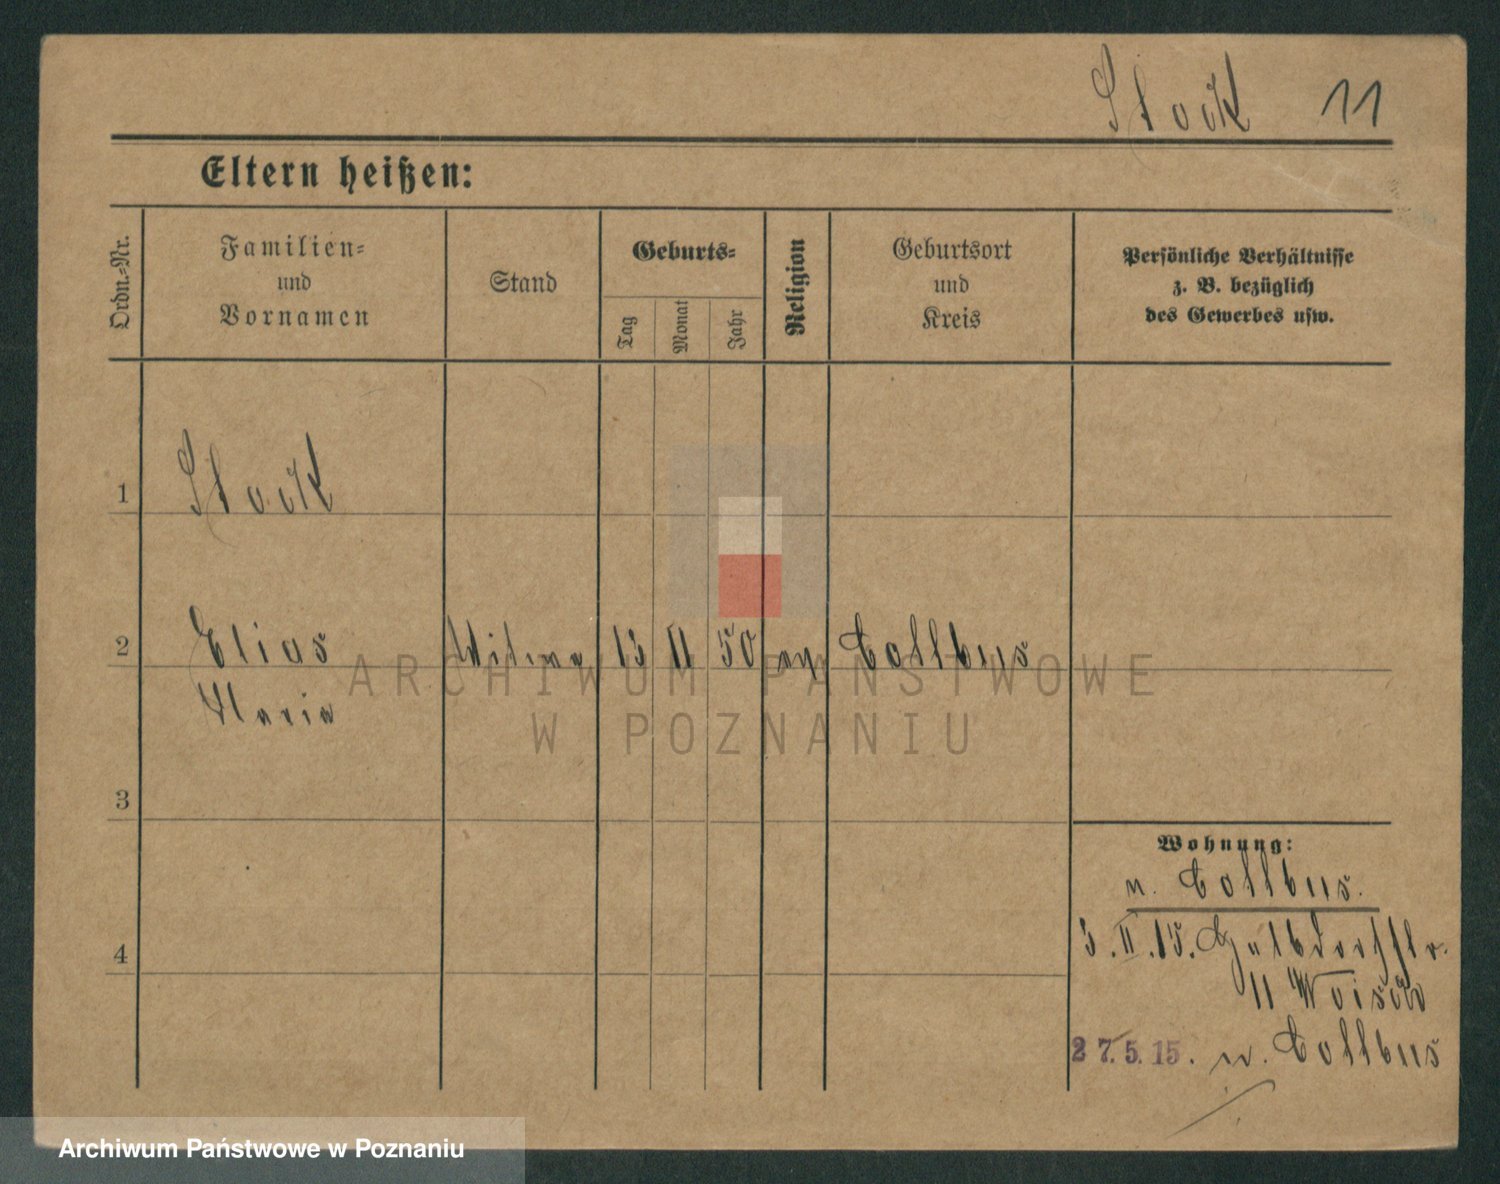 Stock 11
Eltern heißen:
Ordn.-Nr.
Familien-
und
Vornamen
Stand
Geburts-
Tag
Monat
Jahr
Religion
Geburtsort
und
Kreis
Persönliche Verhältnisse
z. B. bezüglich
des Gewerbes usw.
1 Stock
2 Elias Witwe 13 II 50 ev Cottbus
Maria
3
Wohnung:
n. Cottbus.
3. II. 15.
4
11
27.5.15. n. Cottbus
ARCHIWUM PAŃSTWOWE
W POZNANIU
Archiwum Państwowe w Poznaniu